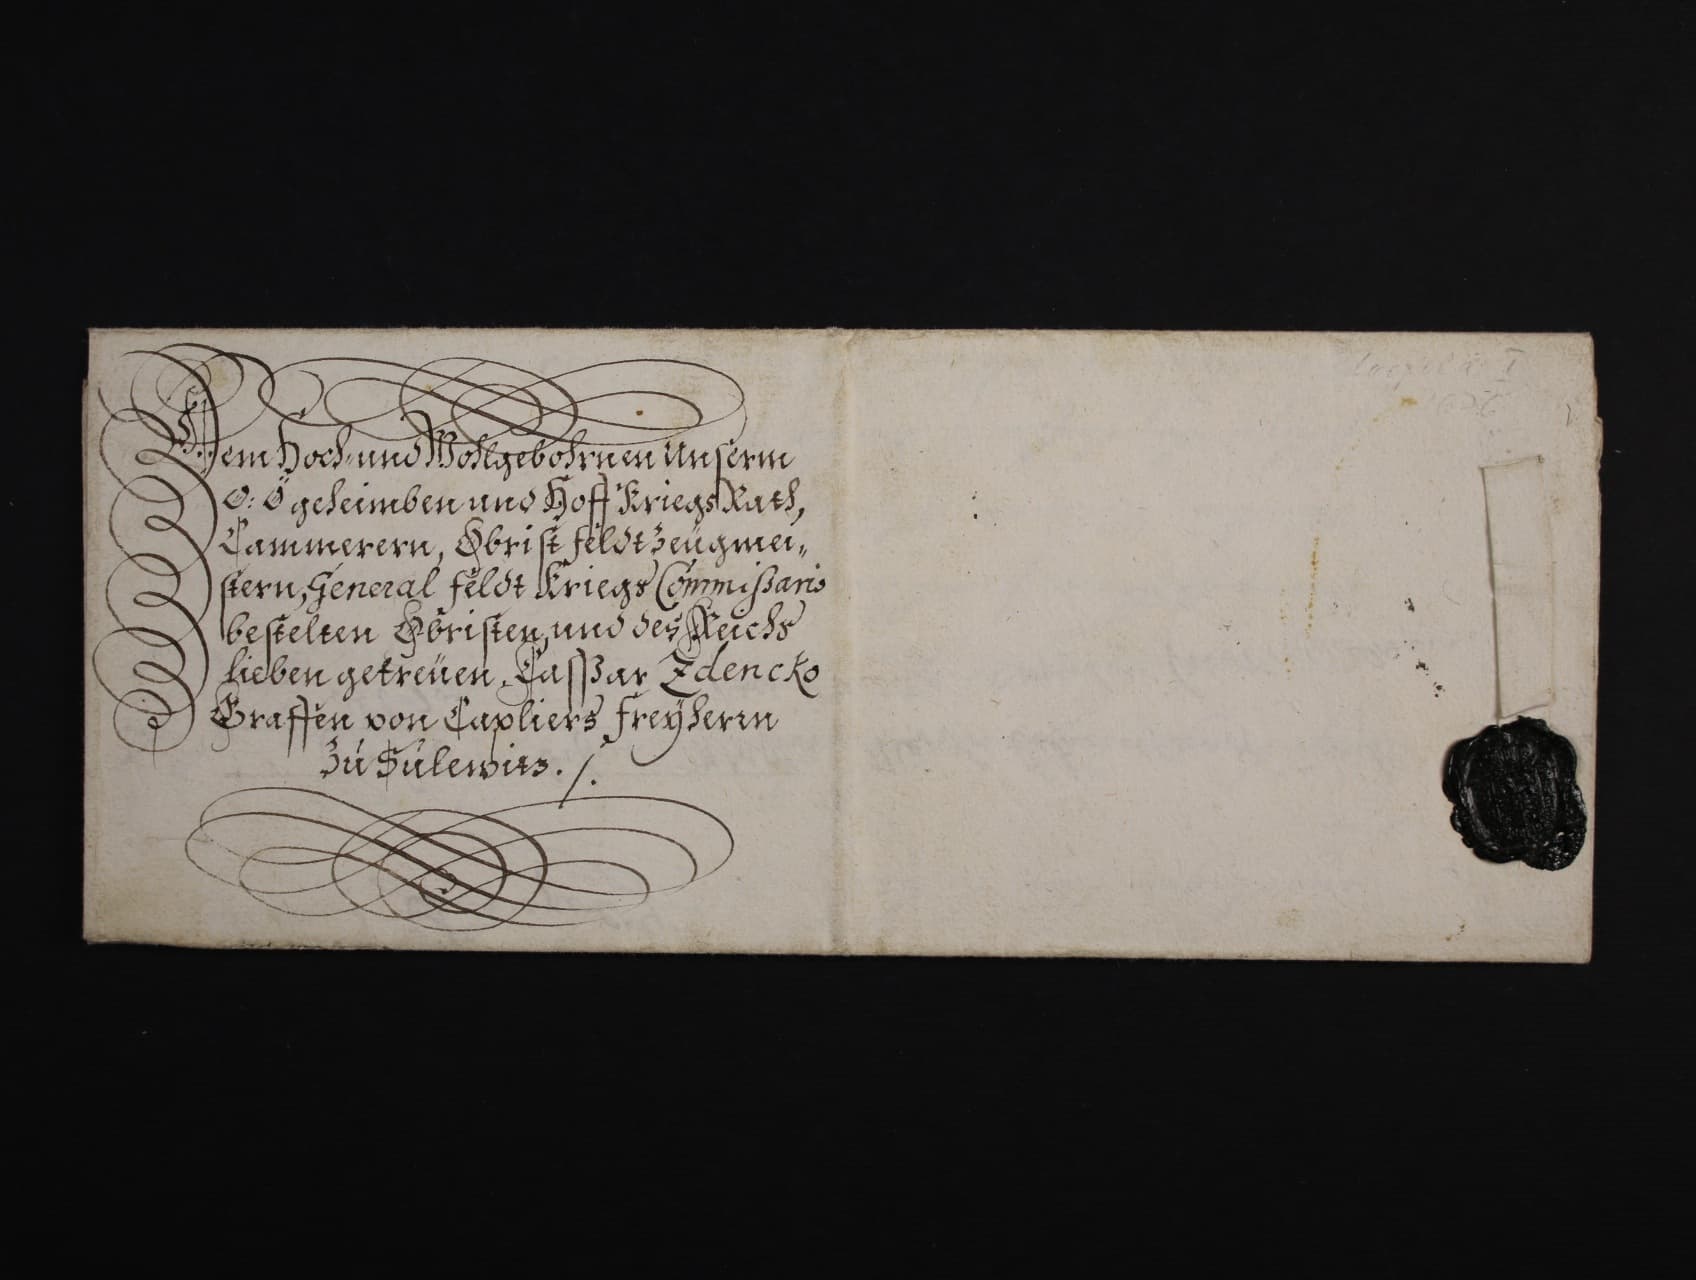 Dem Hoch- und Wohlgebohrnen Unserm
O: Ö geheimben und Hoff Kriegs Rath,
Cammerern, Obrist feldtzeügmei„
stern, General feldt Kriegs Commißario
bestelten Obristen, und des Reichs
lieben getreüen, Casßar Zdencko
Graffen von Capliers freyherrn
Zú Súlewitz. /.
Leopold I